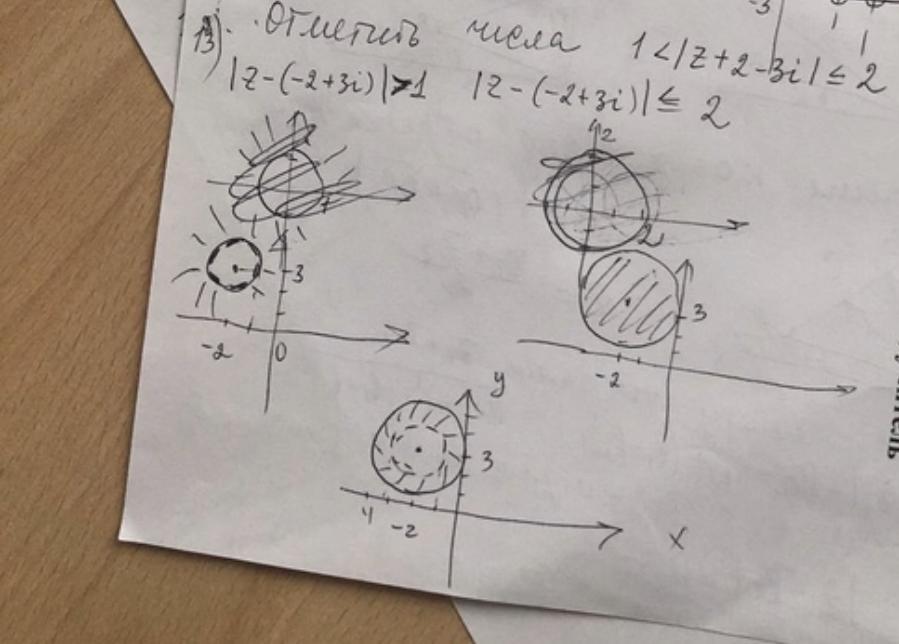 -3
13). Отметить числа 1<|z+2-3i|≤2
|z-(-2+3i)|>1 |z-(-2+3i)|≤ 2
2
2
3
3
-2 0
-2
y
3
4 -2
x